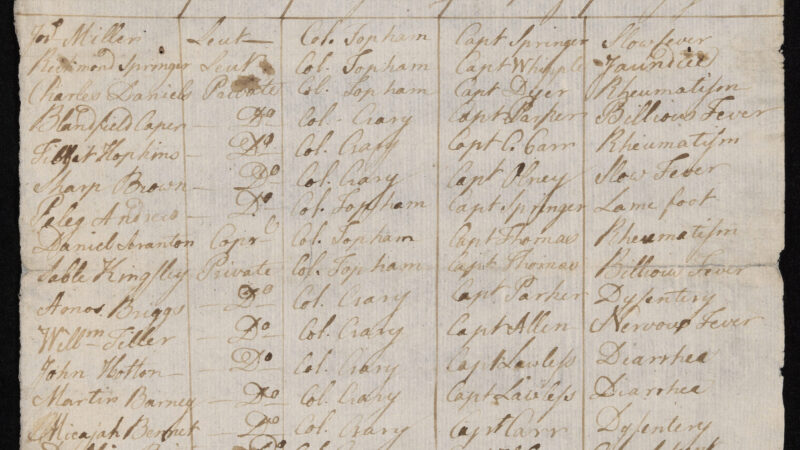 Jos Miller Leut— Col. Topham Capt Springer Slow fever
Richmond Springer Leut Col. Topham Capt Whipple Jaundice
Charles Daniels Private Col. Topham Capt Dyer Rheumatism
Blandfield Caper — Do Col. Crary Capt Parker Billious Fever
Hopkins — Do Col. Crary Capt C. Carr Rheumatism
Sharp Brown — Do Col. Crary Capt Olney Slow Fever
Peleg Andrews — Do Col. Topham Capt Springer Lame foot
Daniel Scranton Corpl Col. Topham Capt Thomas Rheumatism
Sable Kingsley Private Col. Topham Capt Thomas Billious Fever
Amos Briggs — Do Col. Crary Capt Parker Dysentery
Willm Teller — Do Col. Crary Capt Allen Nervous Fever
John Hotton — Do Col. Crary Capt Lawless Diarrhea
Martin Barney — Do Col. Crary Capt Lawless Diarrhea
Micajah Bennet — Do Col. Crary Capt Carr Dysentery